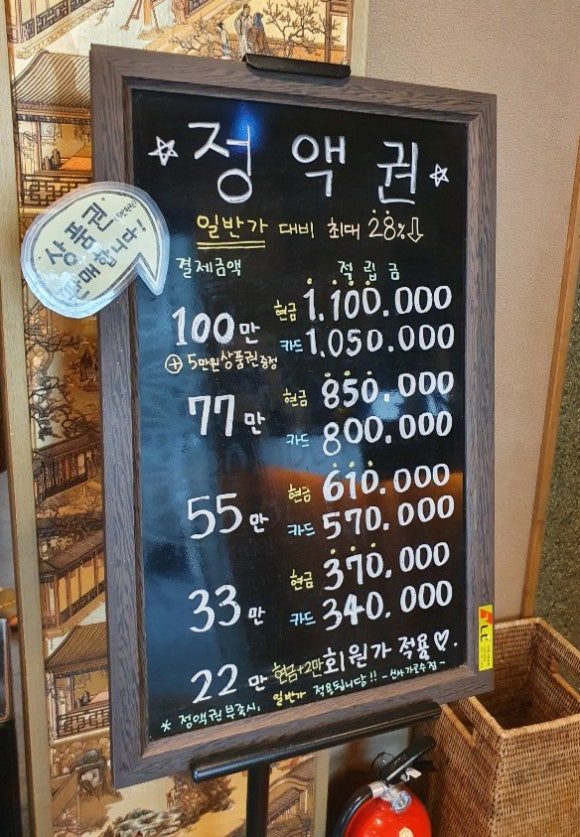 정액권
일반가 대비 최대 28%
결제금액 적립금
100만 현금 1.100.000
카드 1.050.000
+ 5만원 상품권 증정
77만 현금 850.000
카드 800.000
55만 현금 610.000
카드 570.000
33만 현금 370.000
카드 340.000
22만 현금+2만 회원가 적용♡.
* 정액권 부족시, 일반가 적용됩니당!! ~신사가로수점~
상품권
판매합니다!
LC